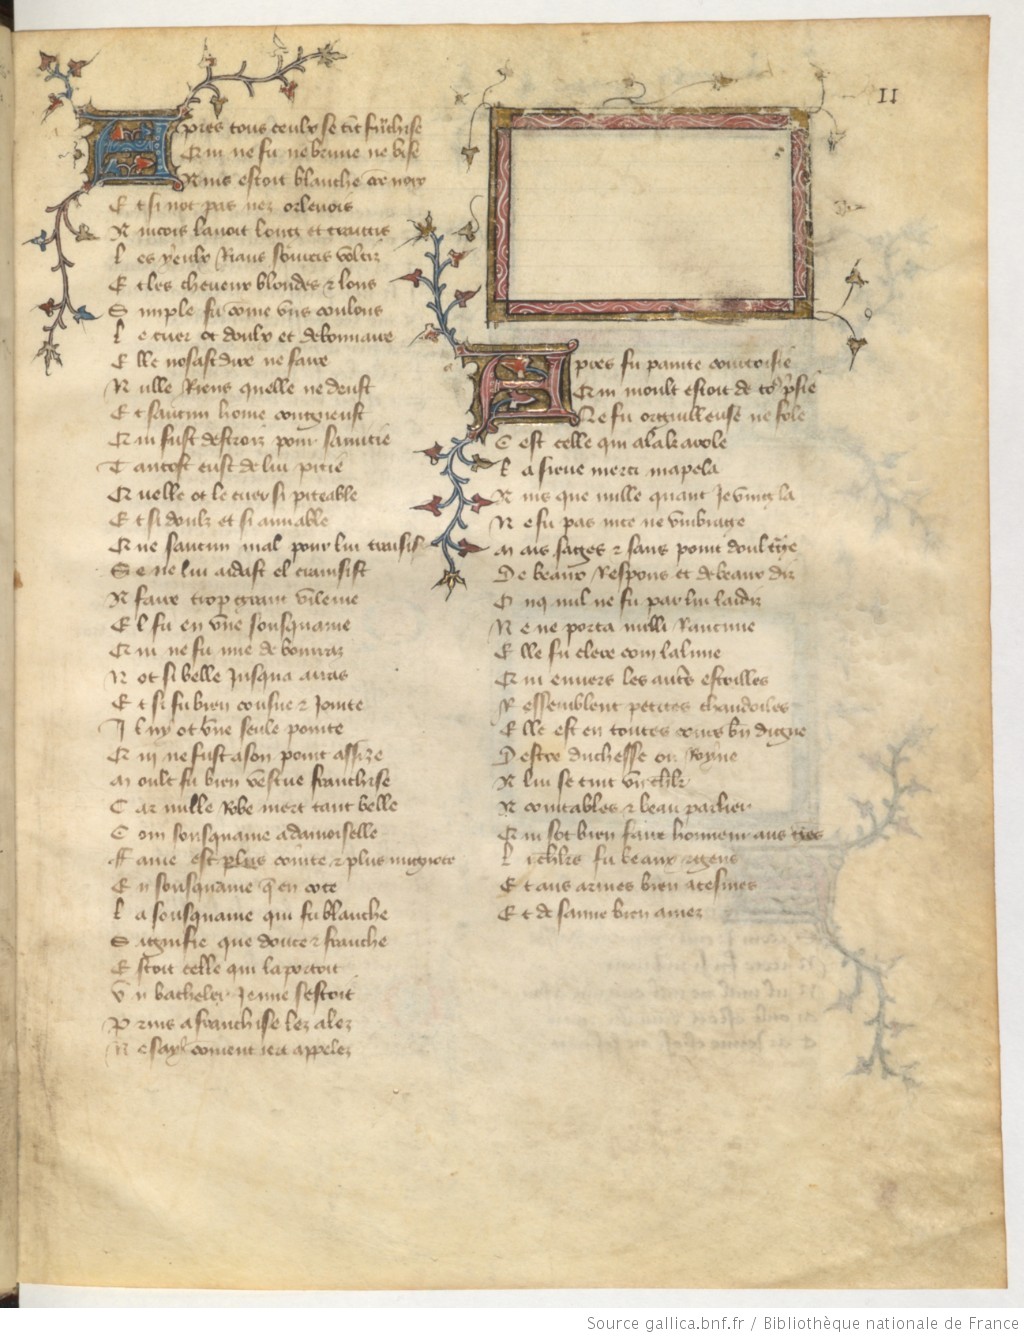 II
Apres tous ceulx se tit franchise
Qui ne fu ne brune ne bise
Ains estoit blanche com noix
Et si not pas nez orlenois
Aincois lavoit lonc et traitis
Les yeulx Rians sourcis voltiz
Et les cheveux blondes et lons
Simple fu come uns coulons
Le cuer ot doulx et debonnaire
Elle nosast dire ne faire
Nulle Riens quelle ne deust
Et saucun home congneust
Qui fust destroiz pour samitie
Tantost eust de lui pitie
Quelle ot le cuer si piteable
Et si doulz et si amiable
Que saucun mal pour lui traisist
Se ne lui aidast el crainsist
A faire trop grant vilenie
El fu en une sousquanie
Qui ne fu mie de bourraz
Not si belle Jusqua arras
Et si fu bien cousue et Jointe
Il ny ot une seule pointe
Qui ne fust a son point assize
Moult fu bien vestue franchise
Car nulle Robe niert tant belle
Com sousquanie a damoiselle
Fame est plus cointe et plus mignote
En sousquanie que en cote
La sousquanie qui fu blanche
Signifie que douce et franche
Estoit celle qui la portoit
Un bacheler Jeune sestoit
Pris a franchise lez alez
Ne say coment iert appelez
Apres fu painte courtoisie
Qui moult estoit de touz prisie
Ne fu orguilleuse ne fole
Cest celle qui a la karole
La sieue merci mapela
Ains que nulle quant Je ving la
Ne fu pas nice ne umbrage
Mais sages et sans point doultrage
De beaux Respons et de beaux diz
Onq nul ne fu par lui laidiz
Ne ne porta nulli Rancune
Elle fu clere com la lune
Qui envers les autres estoilles
Ressemblent petites chandoiles
Elle est en toutes cours bien digne
Destre duchesse ou Royne
A lui se tint un chevalier
Acointables et beau parlier
Qui sot bien faire honneur aus gens
Li chevaliers fu beaux et gens
Et aus armes bien acesmes
Et de samie bien amez
Source gallica.bnf.fr / Bibliothèque nationale de France